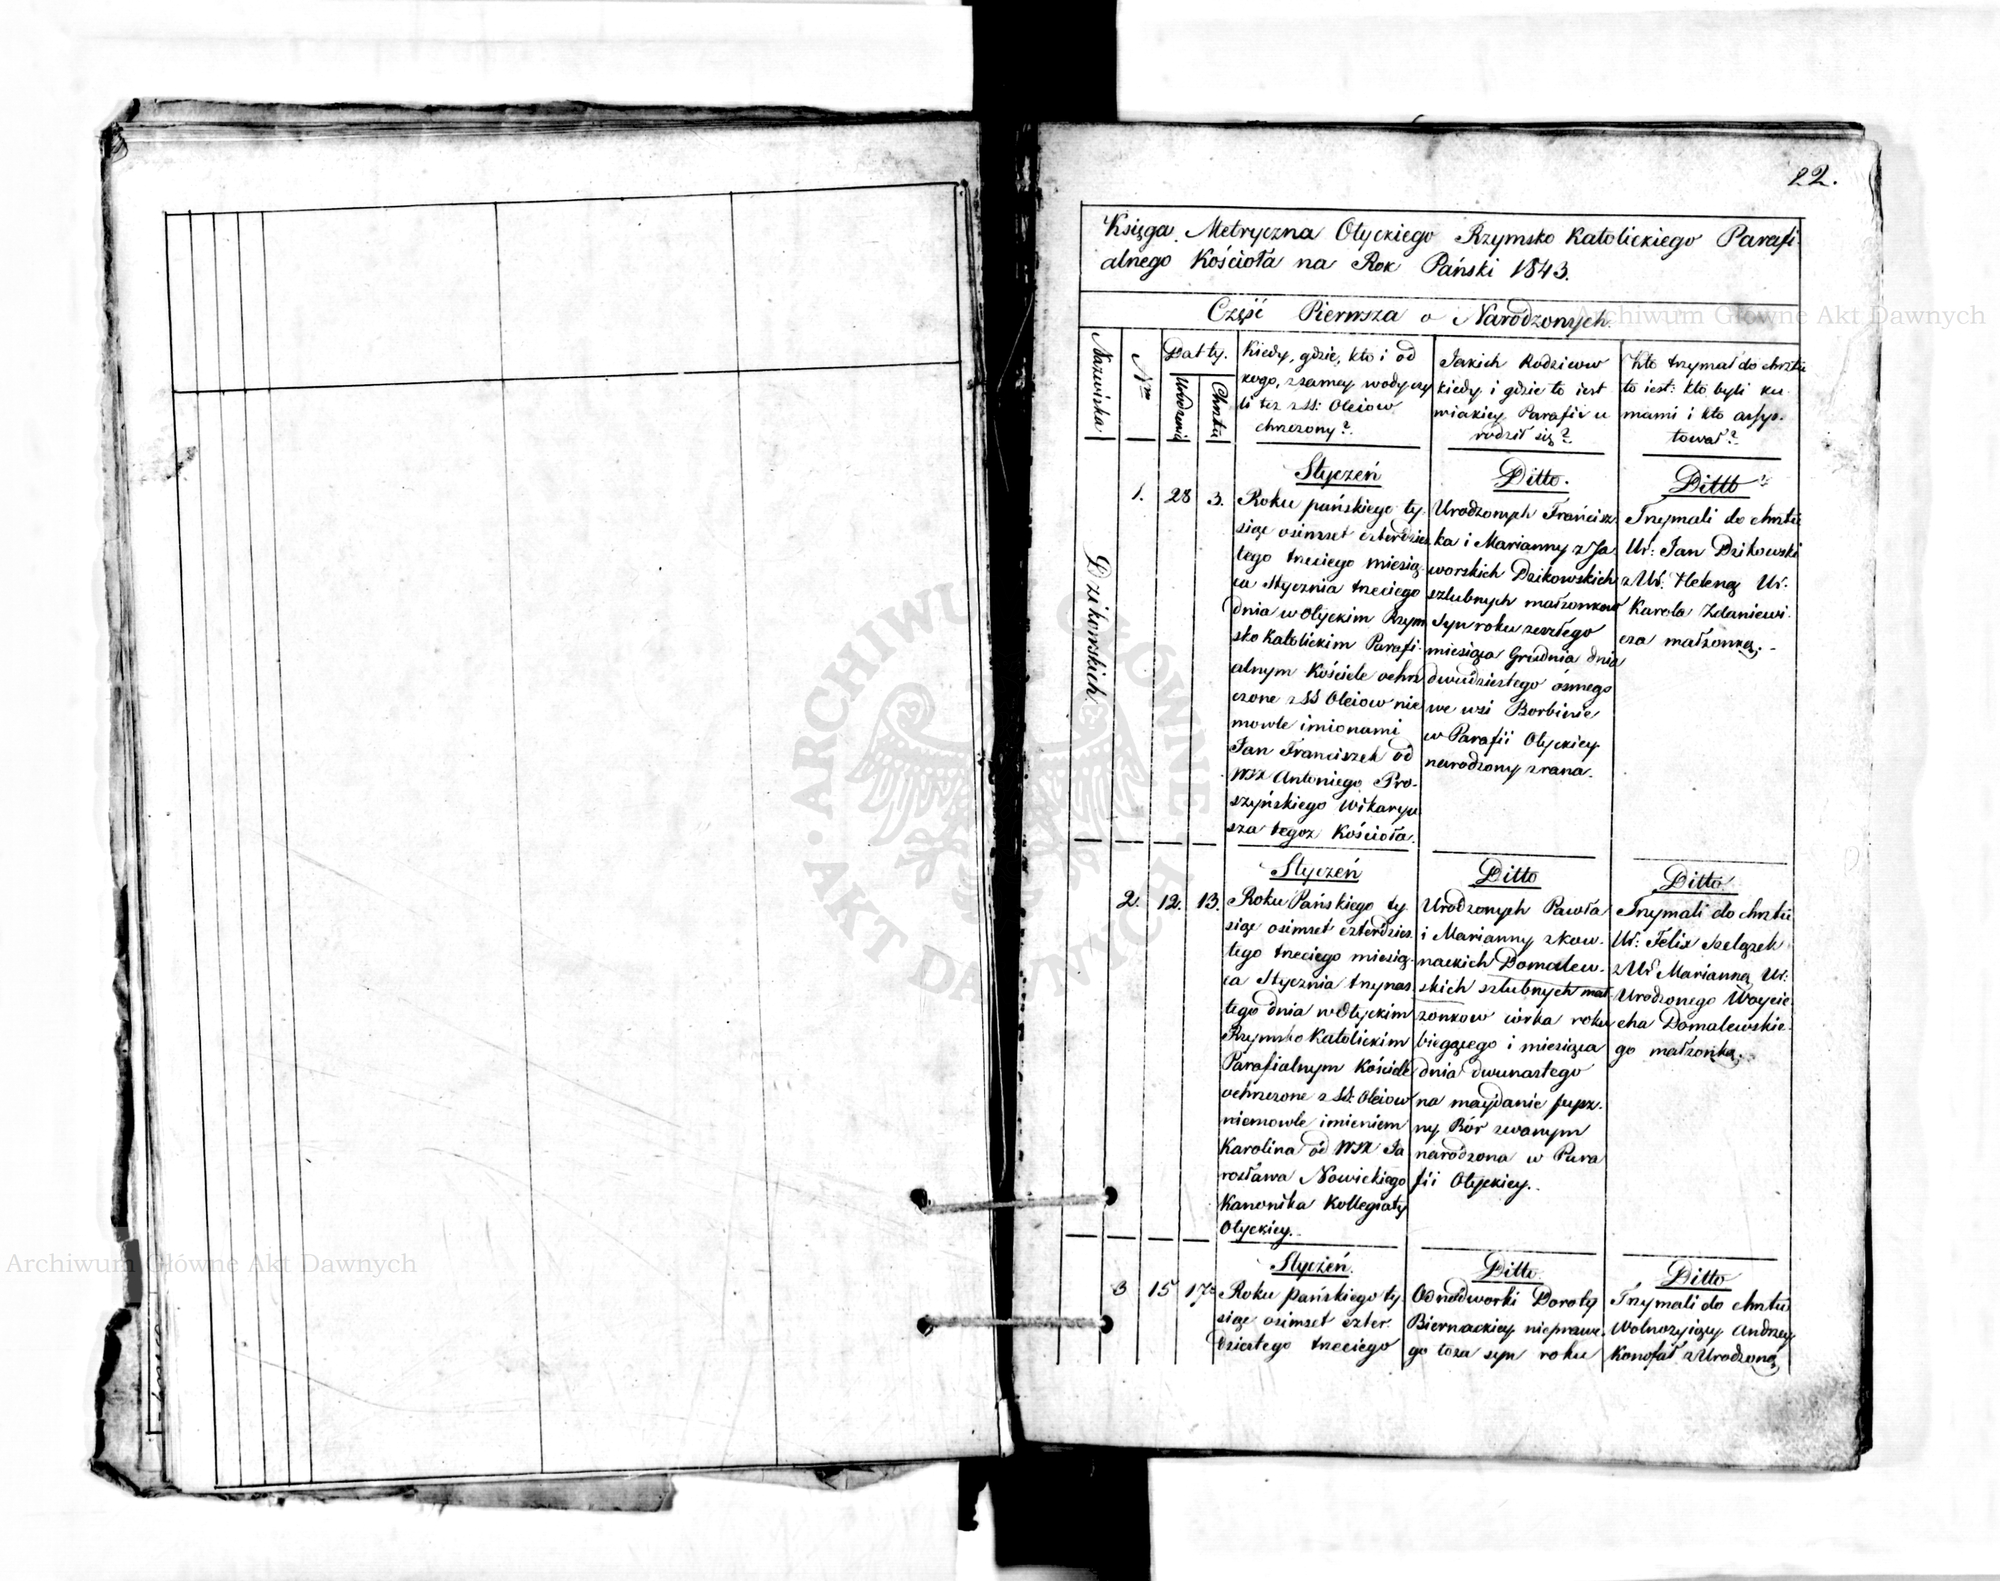 22.
Księga Metryczna Ołyckiego Rzymsko Katolickiego Parafi-
alnego Kościoła na Rok Pański 1843.
Część Pierwsza o Narodzonych.
Nazwiska
Nro
Datty.
Urodzenia
Chrztu
Kiedy, gdzie, kto i od
kogo, z samey wody czy
li też z SS: Oleiow
chrzczony?
Jakich Rodzicow
kiedy i gdzie to iest
w iakiey Parafii u
rodził się?
Kto trzymał do chrztu
to iest: kto byli ku-
mami i kto assys-
tował?
Dzikowskich
1. 28 3.
Styczeń
Roku pańskiego ty-
siąc osimset czterdzies
tego trzeciego miesią-
ca Stycznia trzeciego
dnia w Ołyckim Rzym
sko Katolickim Parafi-
alnym Kościele ochrz
czone z SS Oleiow nie
mowle imionami
Jan Franciszek od
WJX Antoniego Pro-
szyńskiego Wikaryu
sza tegoz Kościoła.
Ditto.
Urodzonych Francisz
ka i Marianny z Ja
worskich Dzikowskich
szlubnych małzonkow
Syn roku zeszłego
miesiąca Grudnia dnia
dwudziestego ósmego
we wsi Borbinie
w Parafii Ołyckiey
narodzony z rana.
Ditto
Trzymali do chrztu
Ur: Jan Dzikowski
z Ur: Heleną Ur:
Karola Zdaniewi-
cza małzonką.
2. 12. 13.
Styczeń
Roku Pańskiego ty-
siąc osimset czterdzies
tego trzeciego miesią-
ca Stycznia trzynas
tego dnia w Ołyckim
Rzymsko Katolickim
Parafialnym Kościele
ochrzczone z SS: Oleiow
niemowle imieniem
Karolina od WJX Ja
rosława Nowickiego
Kanonika Kollegiaty
Ołyckiey.
Ditto
Urodzonych Pawła
i Marianny z Kow-
nackich Domalew-
skich szlubnych mał-
zonkow córka roku
biegącego i miesiąca
dnia dwunastego
na maydanie
ny Bór zwanym
narodzona w Para
fii Ołyckiey.
Ditto
Trzymali do chrztu
Ur: Felix Szelązek
z Ur Marianną Ur:
Urodzonego Woycie
cha Domalewskie-
go małzonką.
3 15 17
Styczeń.
Roku pańskiego ty-
siąc osimset czter-
dziestego trzeciego
Ditto
Odnodworki Doroty
Biernackiey nieprawe-
go łoza syn roku
Ditto
Trzymali do chrztu
Wolnozyiący Andrzey
Konofał z Urodzoną
Archiwum Główne Akt Dawnych
Archiwum Główne Akt Dawnych
ARCHIWUM GŁÓWNE AKT DAWNYCH